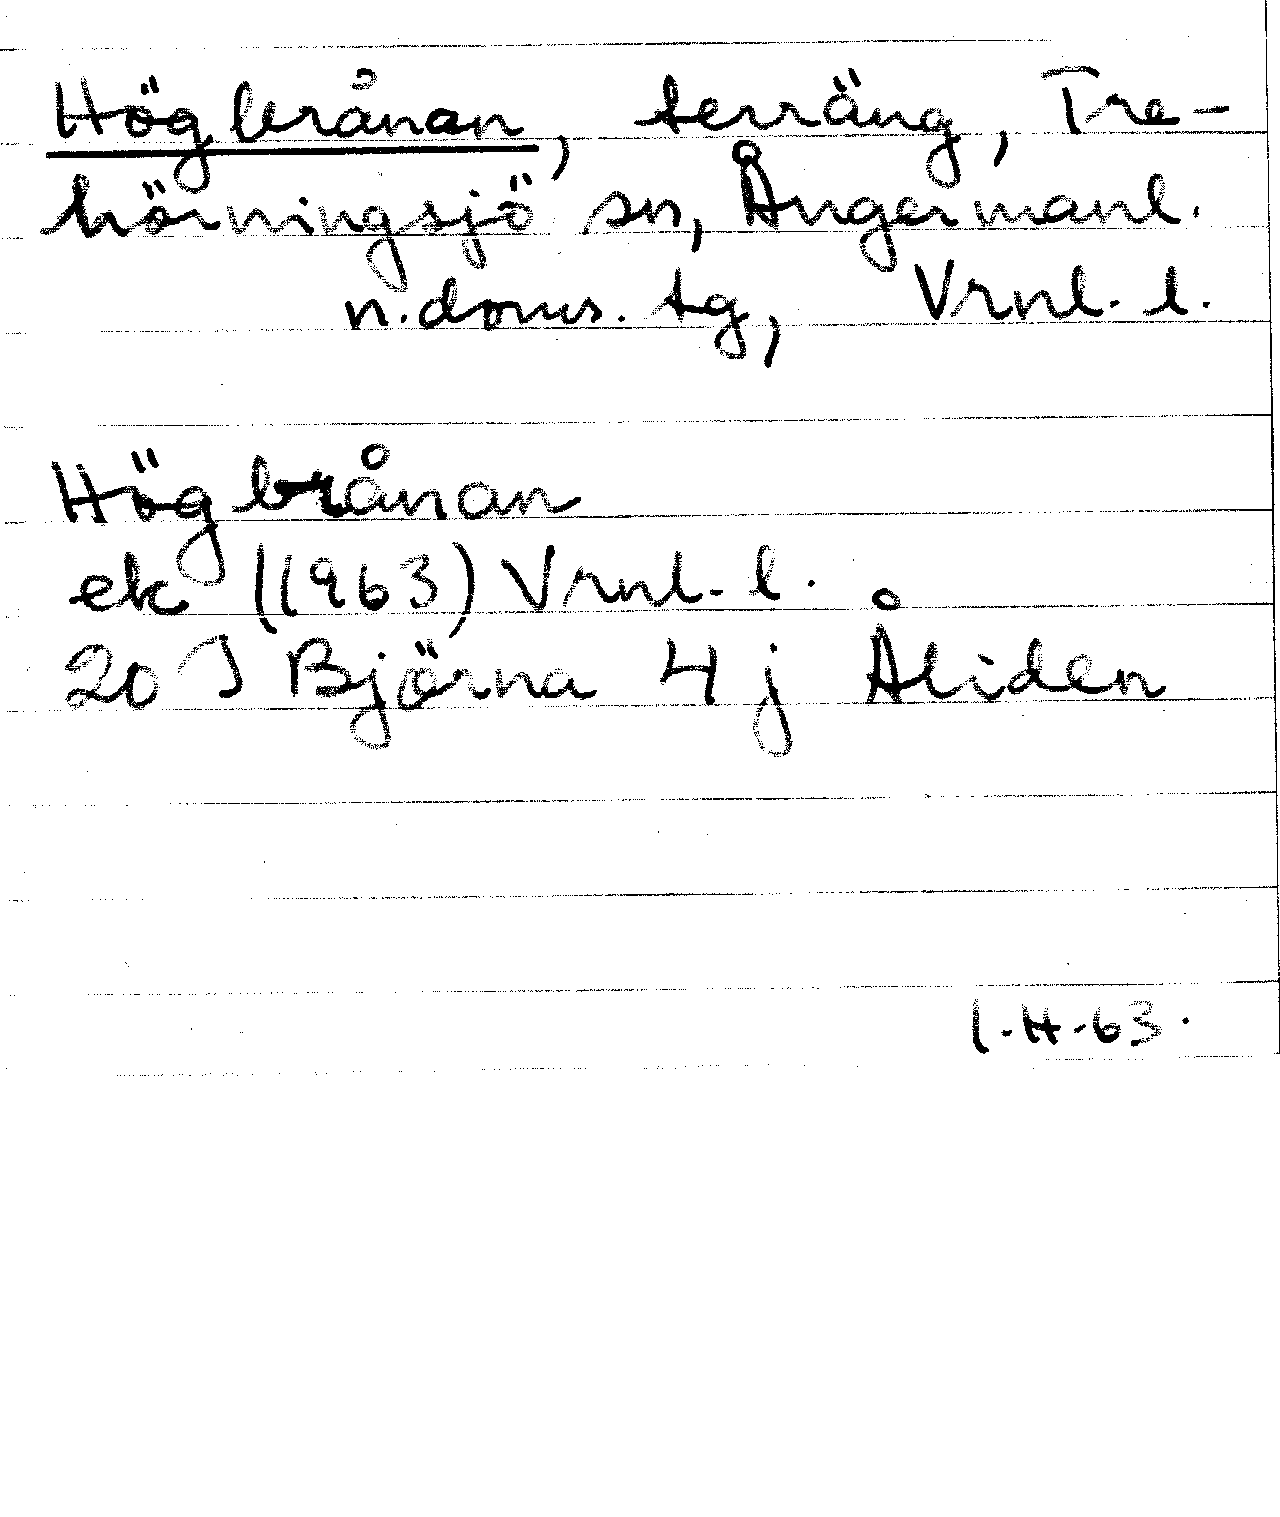 Högbrånan, terräng, Tre-
hörningsjö sn, Ångermanl.
n. doms. tg, Vrnl. l.
Högbrånan
ek (1963) Vrnl. l.
20 J Björna 4 j Åliden
1.H.63.